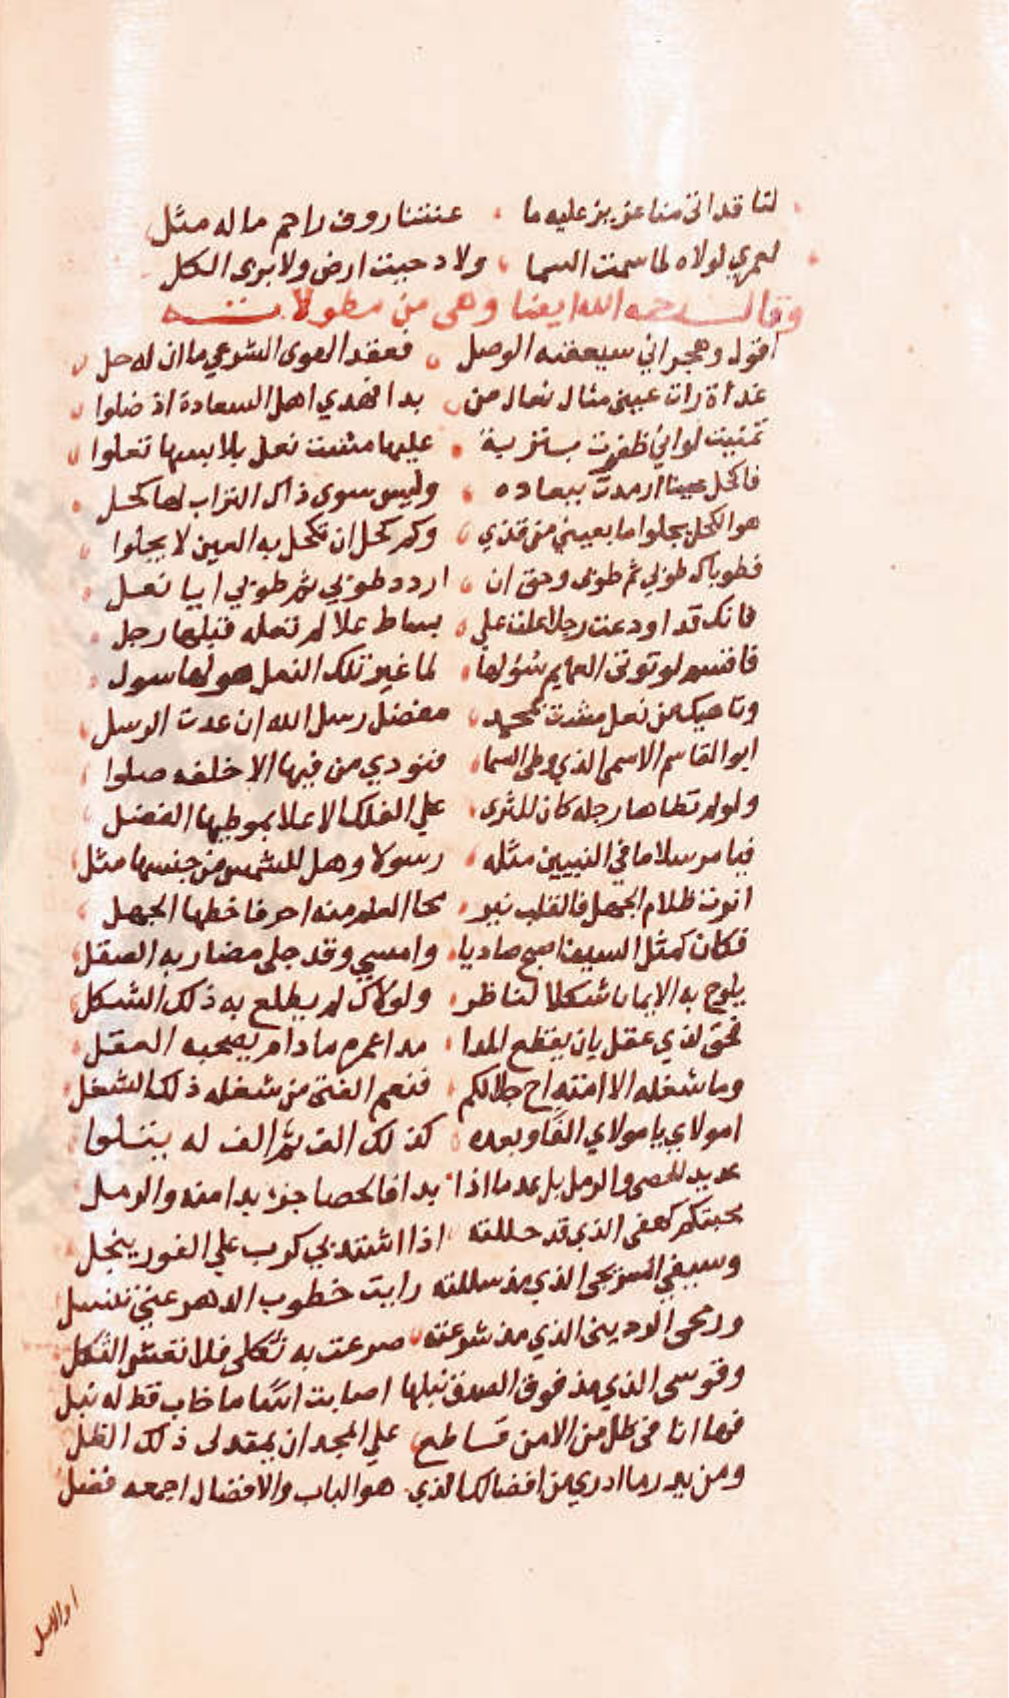 لقد اتى منا عزيز عليه ما عنتنا روف راحم ما له مثل
لعمري لولاه لما سمت السما ولا دحيت ارض ولا برى الكل
وقال رحمه الله ايضا وهى من مطولاته
اقول وهجراني سيعقبه الوصل فعقد الهوى الشرعي ما ان له حل
غداة رات عيني مثال نعال من بدا لهدي اهل السعادة اذ ضلوا
تمنيت لو اني ظفرت بتربة عليها مشت نعل بلابسها تعلوا
فاكحل عينا ارمدت ببعاده وليس سوى ذاك التراب لها كحل
هو الكحل يجلوا ما بعيني من قذي وكم كحل ان تكحل به العين لا يجلوا
فطوباك طوبى ثم طوبى وحق ان اردد طوبي ثم طوبي ايا نعل
فانك قد اودعت رجلا علت علي بساط علا لم تعله قبلها رجل
فاقسم لو توتى العمايم سؤلها لما غير تلك النعل هو لها سول
وناهيك من نعل مشت بمحمد مفضل رسل الله ان عدت الرسل
ابو القاسم الاسمى الذي وطى السما فنودي من فيها الا خلفه صلوا
ولو لم تطاها رجله كان للثرى علي الفلك الاعلا بموطيها الفضل
فيا مرسلا ما في النبيين مثله رسولا وهل للشمس من جنسها مثل
انرت ظلام الجهل فالقلب نير محا العلم منه احرفا خطها الجهل
فكان كمثل السيف اصبح صاديا وامسي وقد جلى مضاربه الصقل
يلوح به الايمان شكلا لناظر ولولاك لم يطلع به ذلك الشكل
فحق لذي عقل بان يقطع المدا مدا عمره ما دام يصحبه العقل
وما شغله الا امتداح جلالكم فنعم الفتى من شغله ذلك الشغل
امولاي يا مولاي الفا وبعده كذلك الف ثم الف له يتلوا
عديد الحصى والرمل بل عد ما اذا بدا فالحصا جزء بدا منه والرمل
محبتكم كهفى الذي قد حللته اذا اشتد بي كرب علي الفور ينجل
وسيفي السريجى الذي مذ سللته رايت خطوب الدهر عني تنسل
ورمحى الرديني الذي مذ شرعته صرعت به ثكلى فلا نعش الثكل
وقوسى الذي مذ فوق الصدق نبلها اصابت ما خاب قط له نبل
فها انا في ظل من الامن ساطع علي المجد ان يمتد لى ذلك الظل
ومن يدر ما ادري من افضالك الذي هو الباب والافضال اجمعه فضل